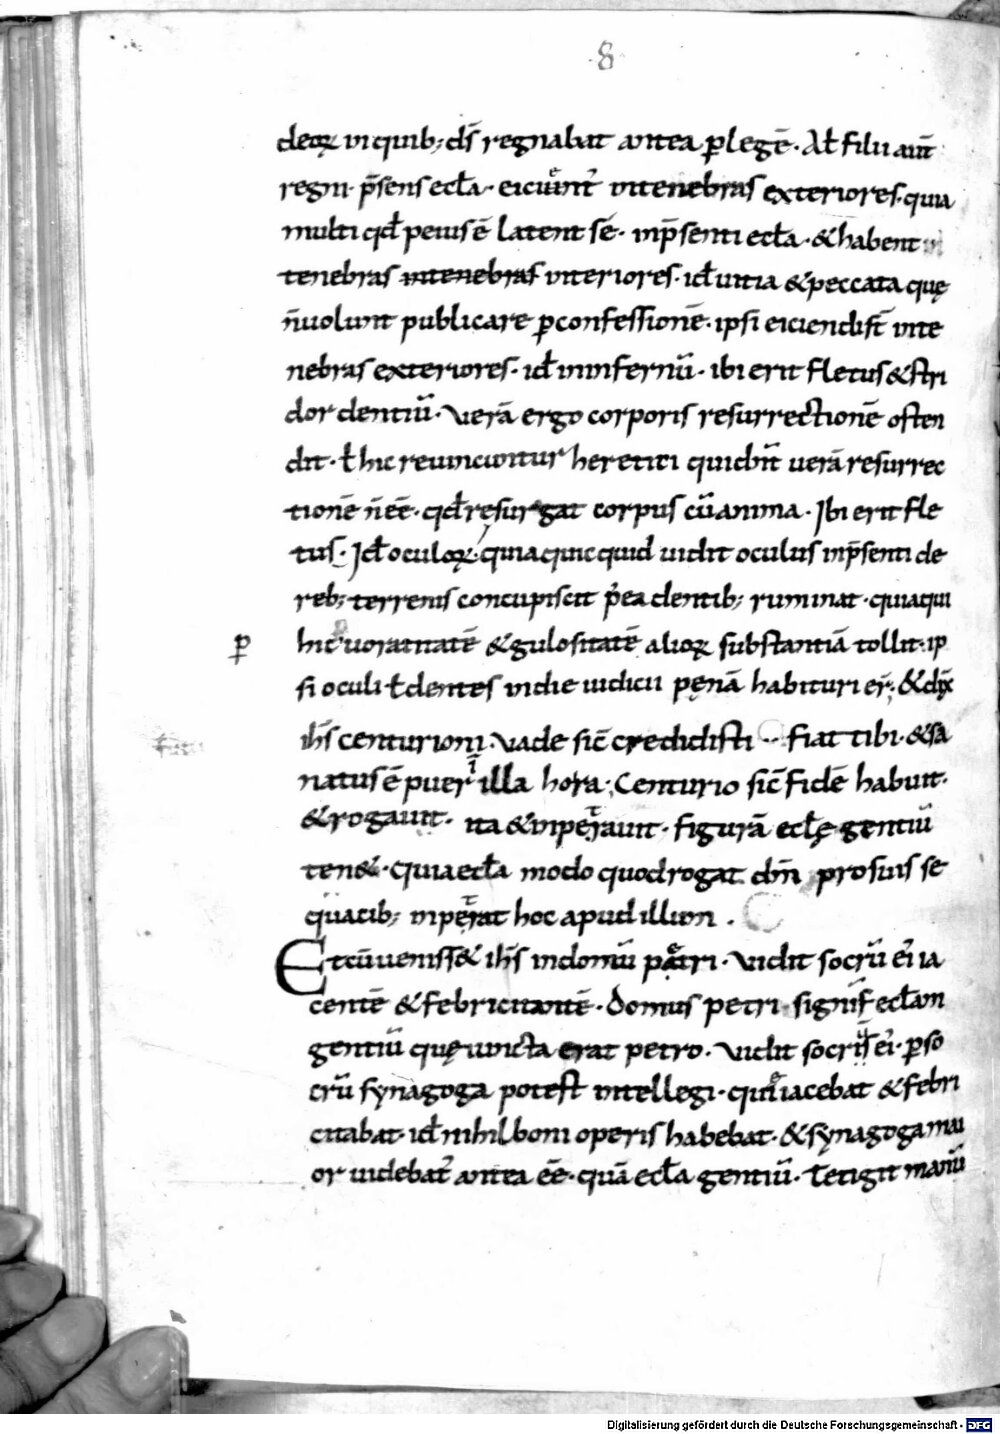 8
deoꝝ in quib; dr̄ regnabat antea ꝑlegē. Aƚ filii aūt
regni. p̄sens eccƚa. eiciunt̄ intenebras exteriores. quia
multi qđ peius ē latent sē. inp̄senti eccƚa. & habent
tenebras intenebras interiores. iđ uitia & peccata quę
n̄uolunt publicare ꝑconfessionē. ipsi eiciendi s̄t inte
nebras exteriores. iđ ininfernū. ibi erit fletus & stri
dor dentiū. Verā ergo corporis resurrectionē osten
dit. ƚ hic reuincuntur heretici quidn̄t uerā resurrec
tionē n̄ēē. qđ resurgat corpus cū anima. Ibi erit fle
tus. Iđ oculoꝝ. quia quicquid uidit oculus inp̄senti de
reb; terrenis concupiscit p̄ea dentib; ruminat. quia qui
ꝑ
hic uoracitatē & gulositatē alioꝝ substantiā tollit. ip
si oculi ƚ dentes indie iudicii pęnā habituri er̄. & dix̄
ih̄s centurioni. Vade sic̄ credidisti fiat tibi. & sa
natus ē puer illa hora; Centurio sic̄ fidē habuit.
& rogauit. ita & inpetrauit. figurā eccƚę gentiū
ten&. quia eccƚa modo quod rogat dn̄m pro suis se
quacib; inpetrat hoc apud illum.
Et cū uenisset ih̄s in domū petri. Vidit socrū ei' ia
centē & febricitantē. Domus petri signif̄ eccƚam
gentiū quę uincta erat petro. Vidit socrū ei'. ꝑ so
crū synagoga potest intellegi. quia iacebat & febri
citabat. iđ nihil boni operis habebat. & synagoga mai
or uidebat̄ antea ēē. quā eccƚa gentiū. Tetigit manū
Digitalisierung gefördert durch die Deutsche Forschungsgemeinschaft - DFG